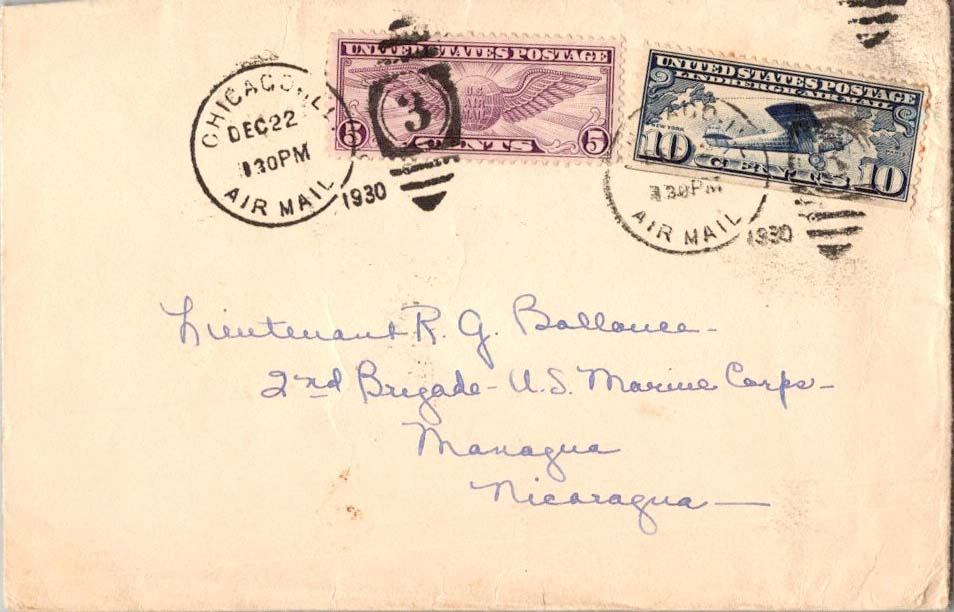 CHICAGO, ILL.
DEC 22
130 PM
AIR MAIL
1930
3
UNITED STATES POSTAGE
U.S. AIR MAIL
5 CENTS 5
UNITED STATES POSTAGE
LINDBERGH AIR MAIL
NEW YORK
10 CENTS 10
30 PM
AIR MAIL
1930
Lieutenant R. G. Ballance -
2nd Brigade - U.S. Marine Corps -
Managua
Nicaragua —